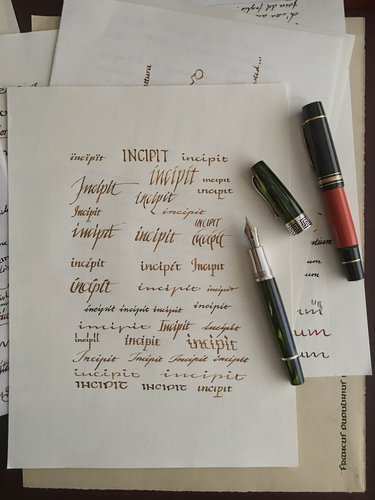 incipit INCIPIT incipit
Incipit incipit incipit
incipit incipit
Incipit incipit INCIPIT
incipit incipit incipit
incipit incipit Incipit
incipit incipit incipit
incipit incipit incipit incipit
incipit Incipit incipit
incipit incipit incipit
Incipit Incipit Incipit incipit
incipit incipit
INCIPIT INCIPIT incipit
um
um
um